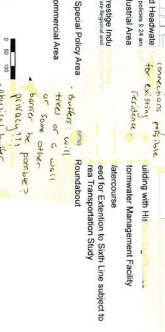 d Headwate
policies 9.24 an
ustrial Area
restige Indu
Special Policy Area
ommercial Area
0 50 100
connections possible
for existing
residence
- Buffer: will
trees or a wall
or some other
barrier be possible?
privacy?!
uilding with His
tormwater Management Facility
atercourse
eed for Extention to Sixth Line subject to
rea Transportation Study
Roundabout